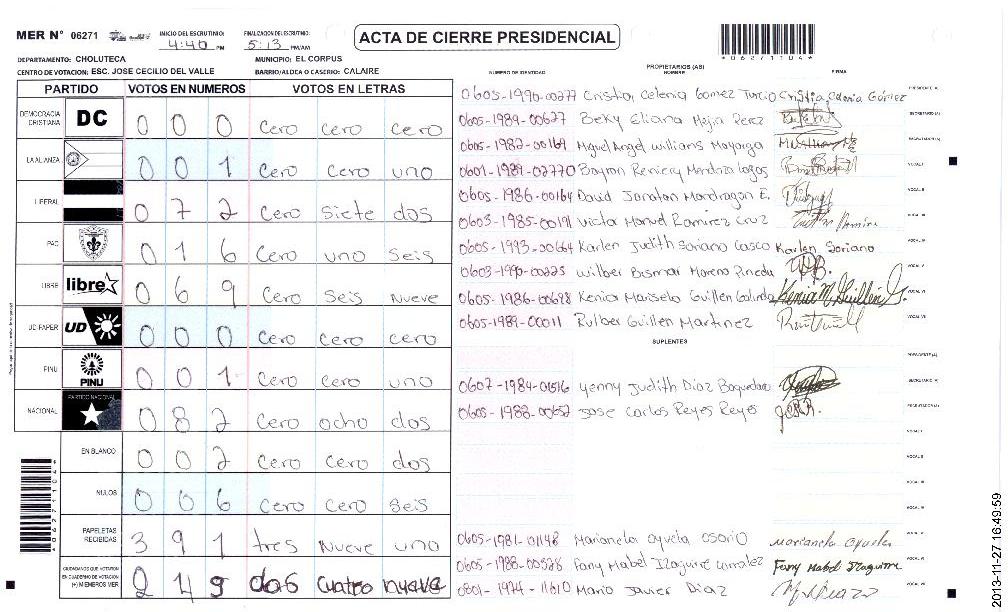 MER N° 06271 INICIO DEL ESCRUTINIO: 4:40 PM FINALIZACION DEL ESCRUTINIO: 5:13 PM/AM
ACTA DE CIERRE PRESIDENCIAL
*06271104*
DEPARTAMENTO: CHOLUTECA MUNICIPIO: EL CORPUS
CENTRO DE VOTACION: ESC. JOSE CECILIO DEL VALLE BARRIO/ALDEA O CASERIO: CALAIRE
PARTIDO VOTOS EN NUMEROS VOTOS EN LETRAS
DEMOCRACIA CRISTIANA DC 0 0 0 Cero Cero Cero
LA ALIANZA 0 0 1 Cero Cero uno
LIBERAL 0 7 2 Cero Siete dos
PAC 0 1 6 Cero uno Seis
LIBRE libre 0 6 9 Cero Seis nueve
UD-FAPER UD 0 0 0 Cero Cero cero
PINU PINU 0 0 1 Cero Cero uno
NACIONAL PARTIDO NACIONAL 0 8 2 Cero ocho dos
EN BLANCO 0 0 2 Cero Cero dos
NULOS 0 0 6 Cero Cero Seis
PAPELETAS RECIBIDAS 3 9 1 tres Nueve uno
CIUDADANOS QUE VOTARON EN CUADERNO DE VOTACION (+) MIEMBROS MER 2 4 9 dos cuatro nueve
*06271104*
PROPIETARIOS (AS)
NUMERO DE IDENTIDAD NOMBRE FIRMA
0605-1990-00277 Cristia Celenia Gomez Turcio Cristia Celenia Gómez PRESIDENTE (A)
0605-1989-00627 Beky Eliana Mejia Perez SECRETARIO (A)
0605-1982-00169 Miguel Angel williams Mayorga ESCRUTADOR (A)
0601-1989-02770 Bayron Reniery Mendoza Lagos VOCAL I
0605-1986-00164 David Jonatan Mondragon E. VOCAL II
0603-1985-00191 Victor Manuel Ramirez Cruz VOCAL III
0605-1993-00664 Karlen Judith Soriano Casco Karlen Soriano VOCAL IV
0603-1990-00225 wilber Bismar Moreno Pineda VOCAL V
0605-1986-00698 Kenia Marisela Guillen Galindo Kenia M. Guillen G. VOCAL VI
0605-1989-00011 Rulber Guillen Martinez VOCAL VII
SUPLENTES
PRESIDENTE (A)
0607-1984-01516 Yenny Judith Diaz SECRETARIO (A)
0605-1988-00652 Jose Carlos Reyes Reyes ESCRUTADOR (A)
VOCAL I
VOCAL II
VOCAL III
VOCAL IV
0605-1981-01148 Marianela ayuela OSORIO marianela ayuela VOCAL V
0605-1988-00528 Fany Mabel Izaguirre Fany Mabel Izaguirre VOCAL VI
0801-1974-11610 Mario Javier Diaz VOCAL VII
2013-11-27 16:49:59